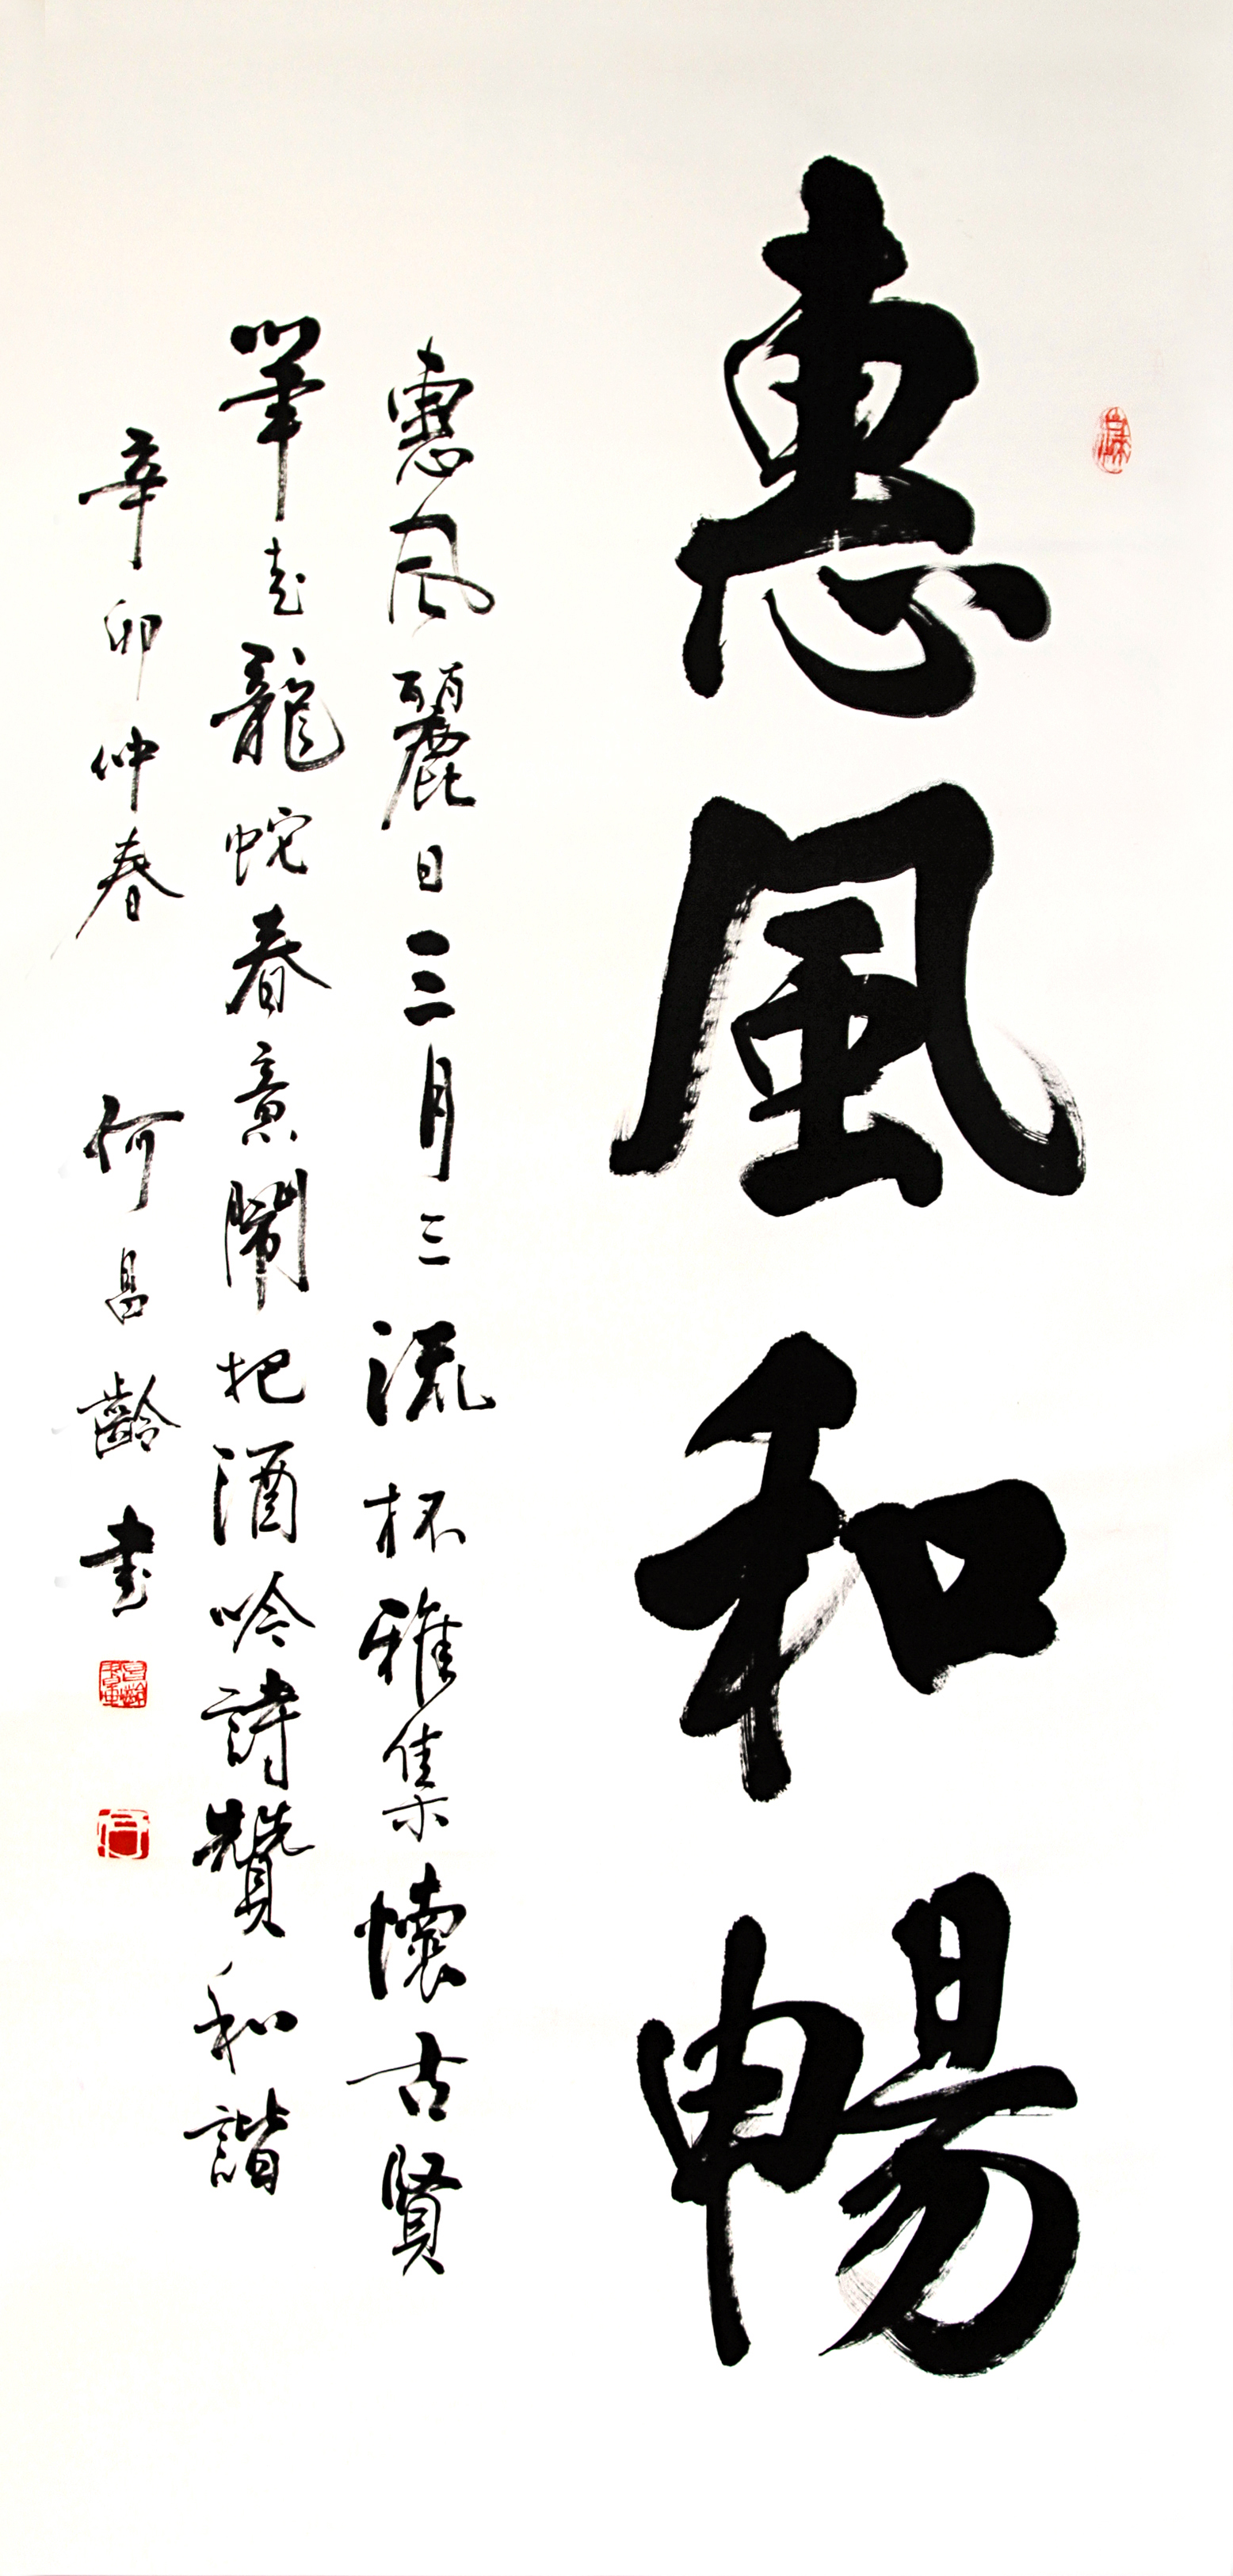 惠風和暢
惠风麗日三月三流杯雅集懷古賢
筆走龍蛇春意鬧把酒吟詩贊和諧
辛卯仲春 何昌齡書